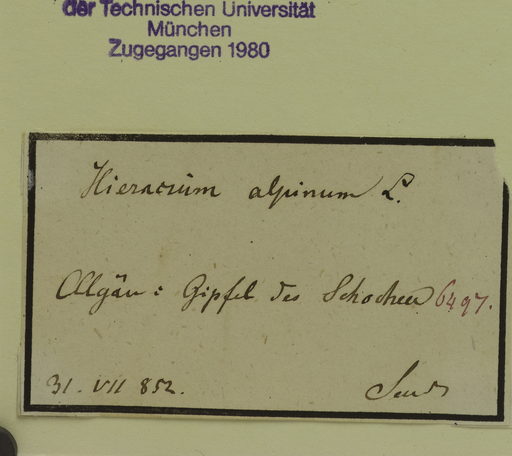 der Technischen Universität
München
Zugegangen 1980
Hieracium alpinum L.
Allgäu: Gipfel des Schochen 6497.
31. VII 852. Sendt